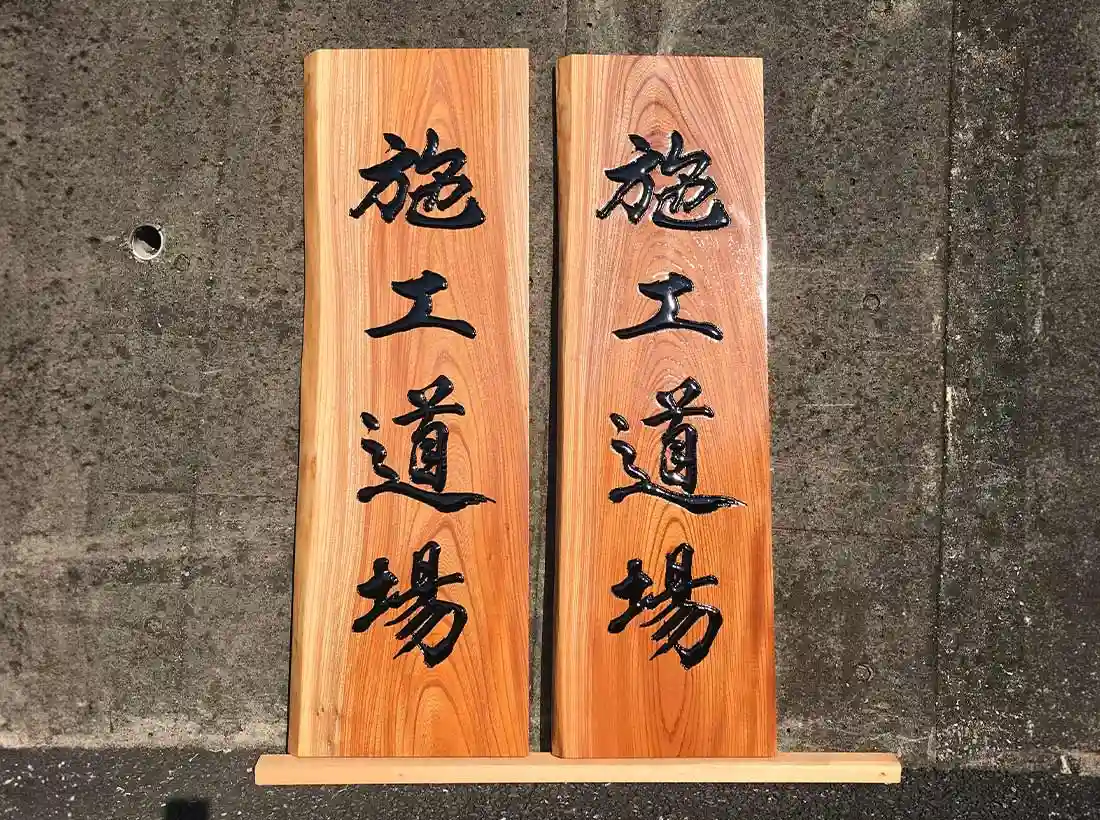 施工道場
施工道場